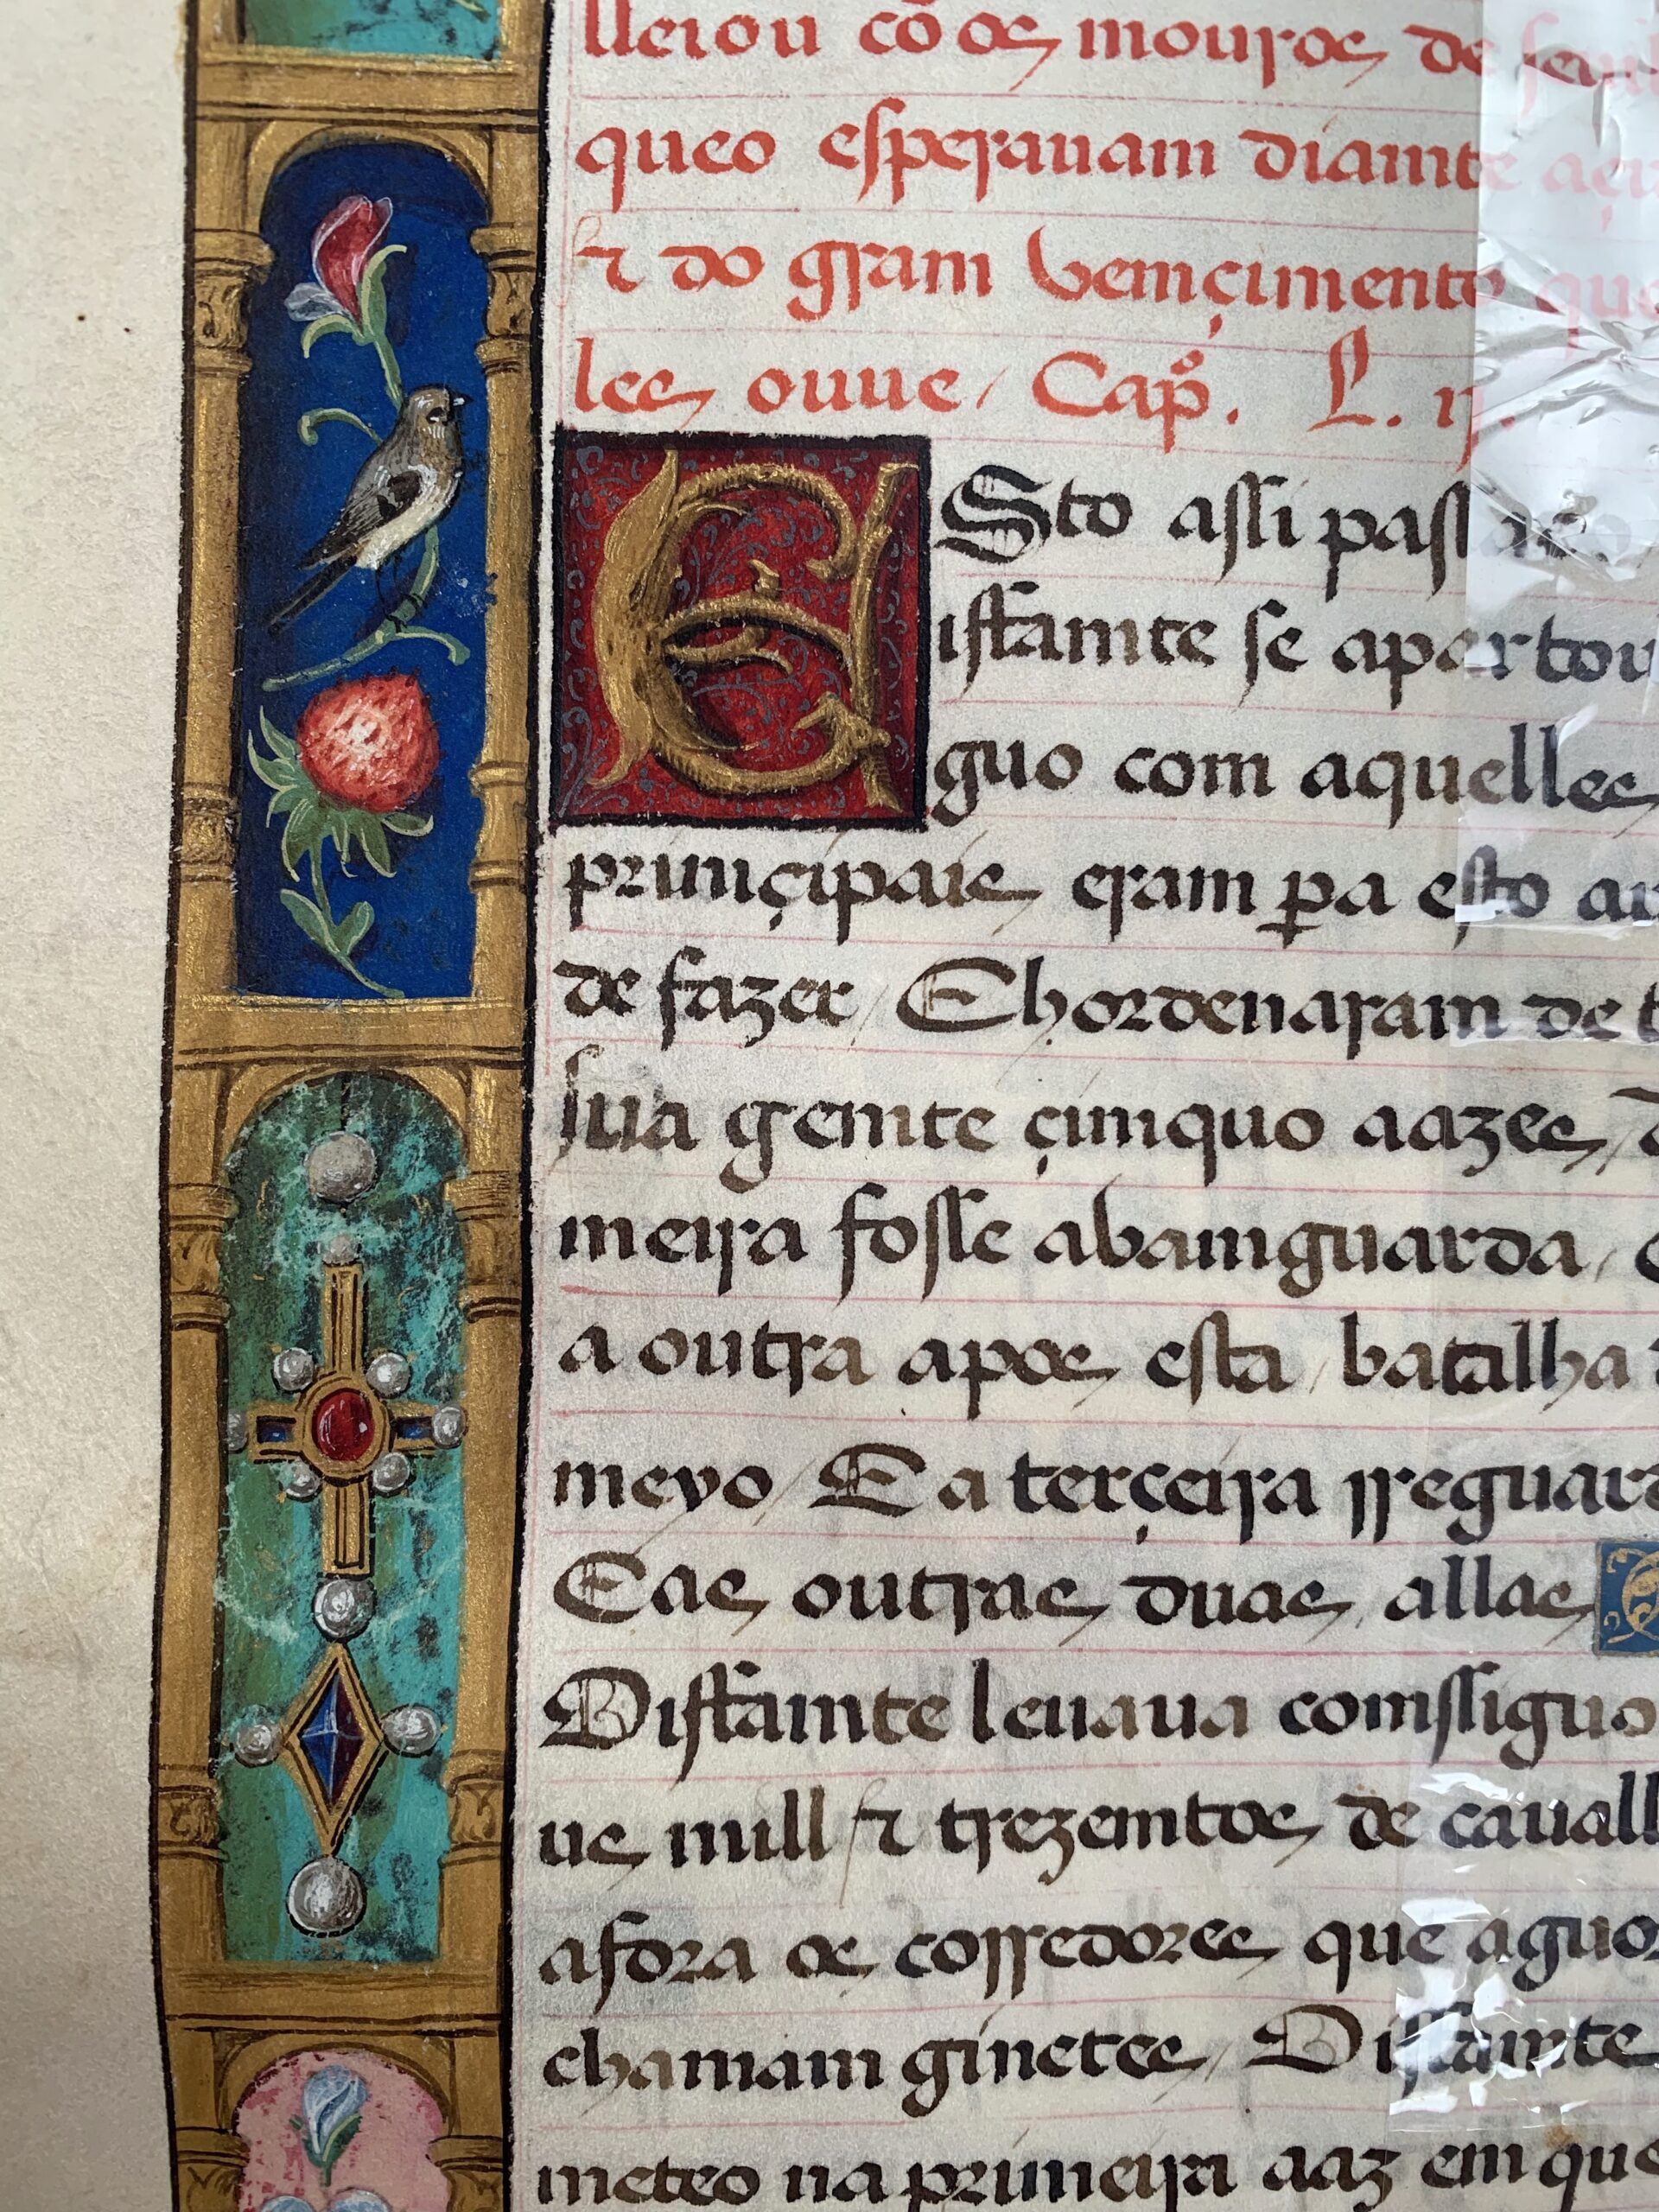 lleiou cõ os mouros de seuil
queo esperauam diamte açer
⁊ do gram vemçimento que
les ouue / Capº. L. ij.
ESto assi passado
iffamte se apartou
guo com aquelles
primçipaes eram pa esto
de fazer / E hordenaram de t
sua gemte çimquo aazes /
meira fosse abamguarda /
a outra apos esta / batalha
meyo / E a terçeira rreguard
E as outras duas / allas
Diffamte leuaua comssiguo
ue mill ⁊ trezemtos de cauall
afora os corredores que aguor
chamam ginetes / Diffamte
meteo na primeira aaz em que